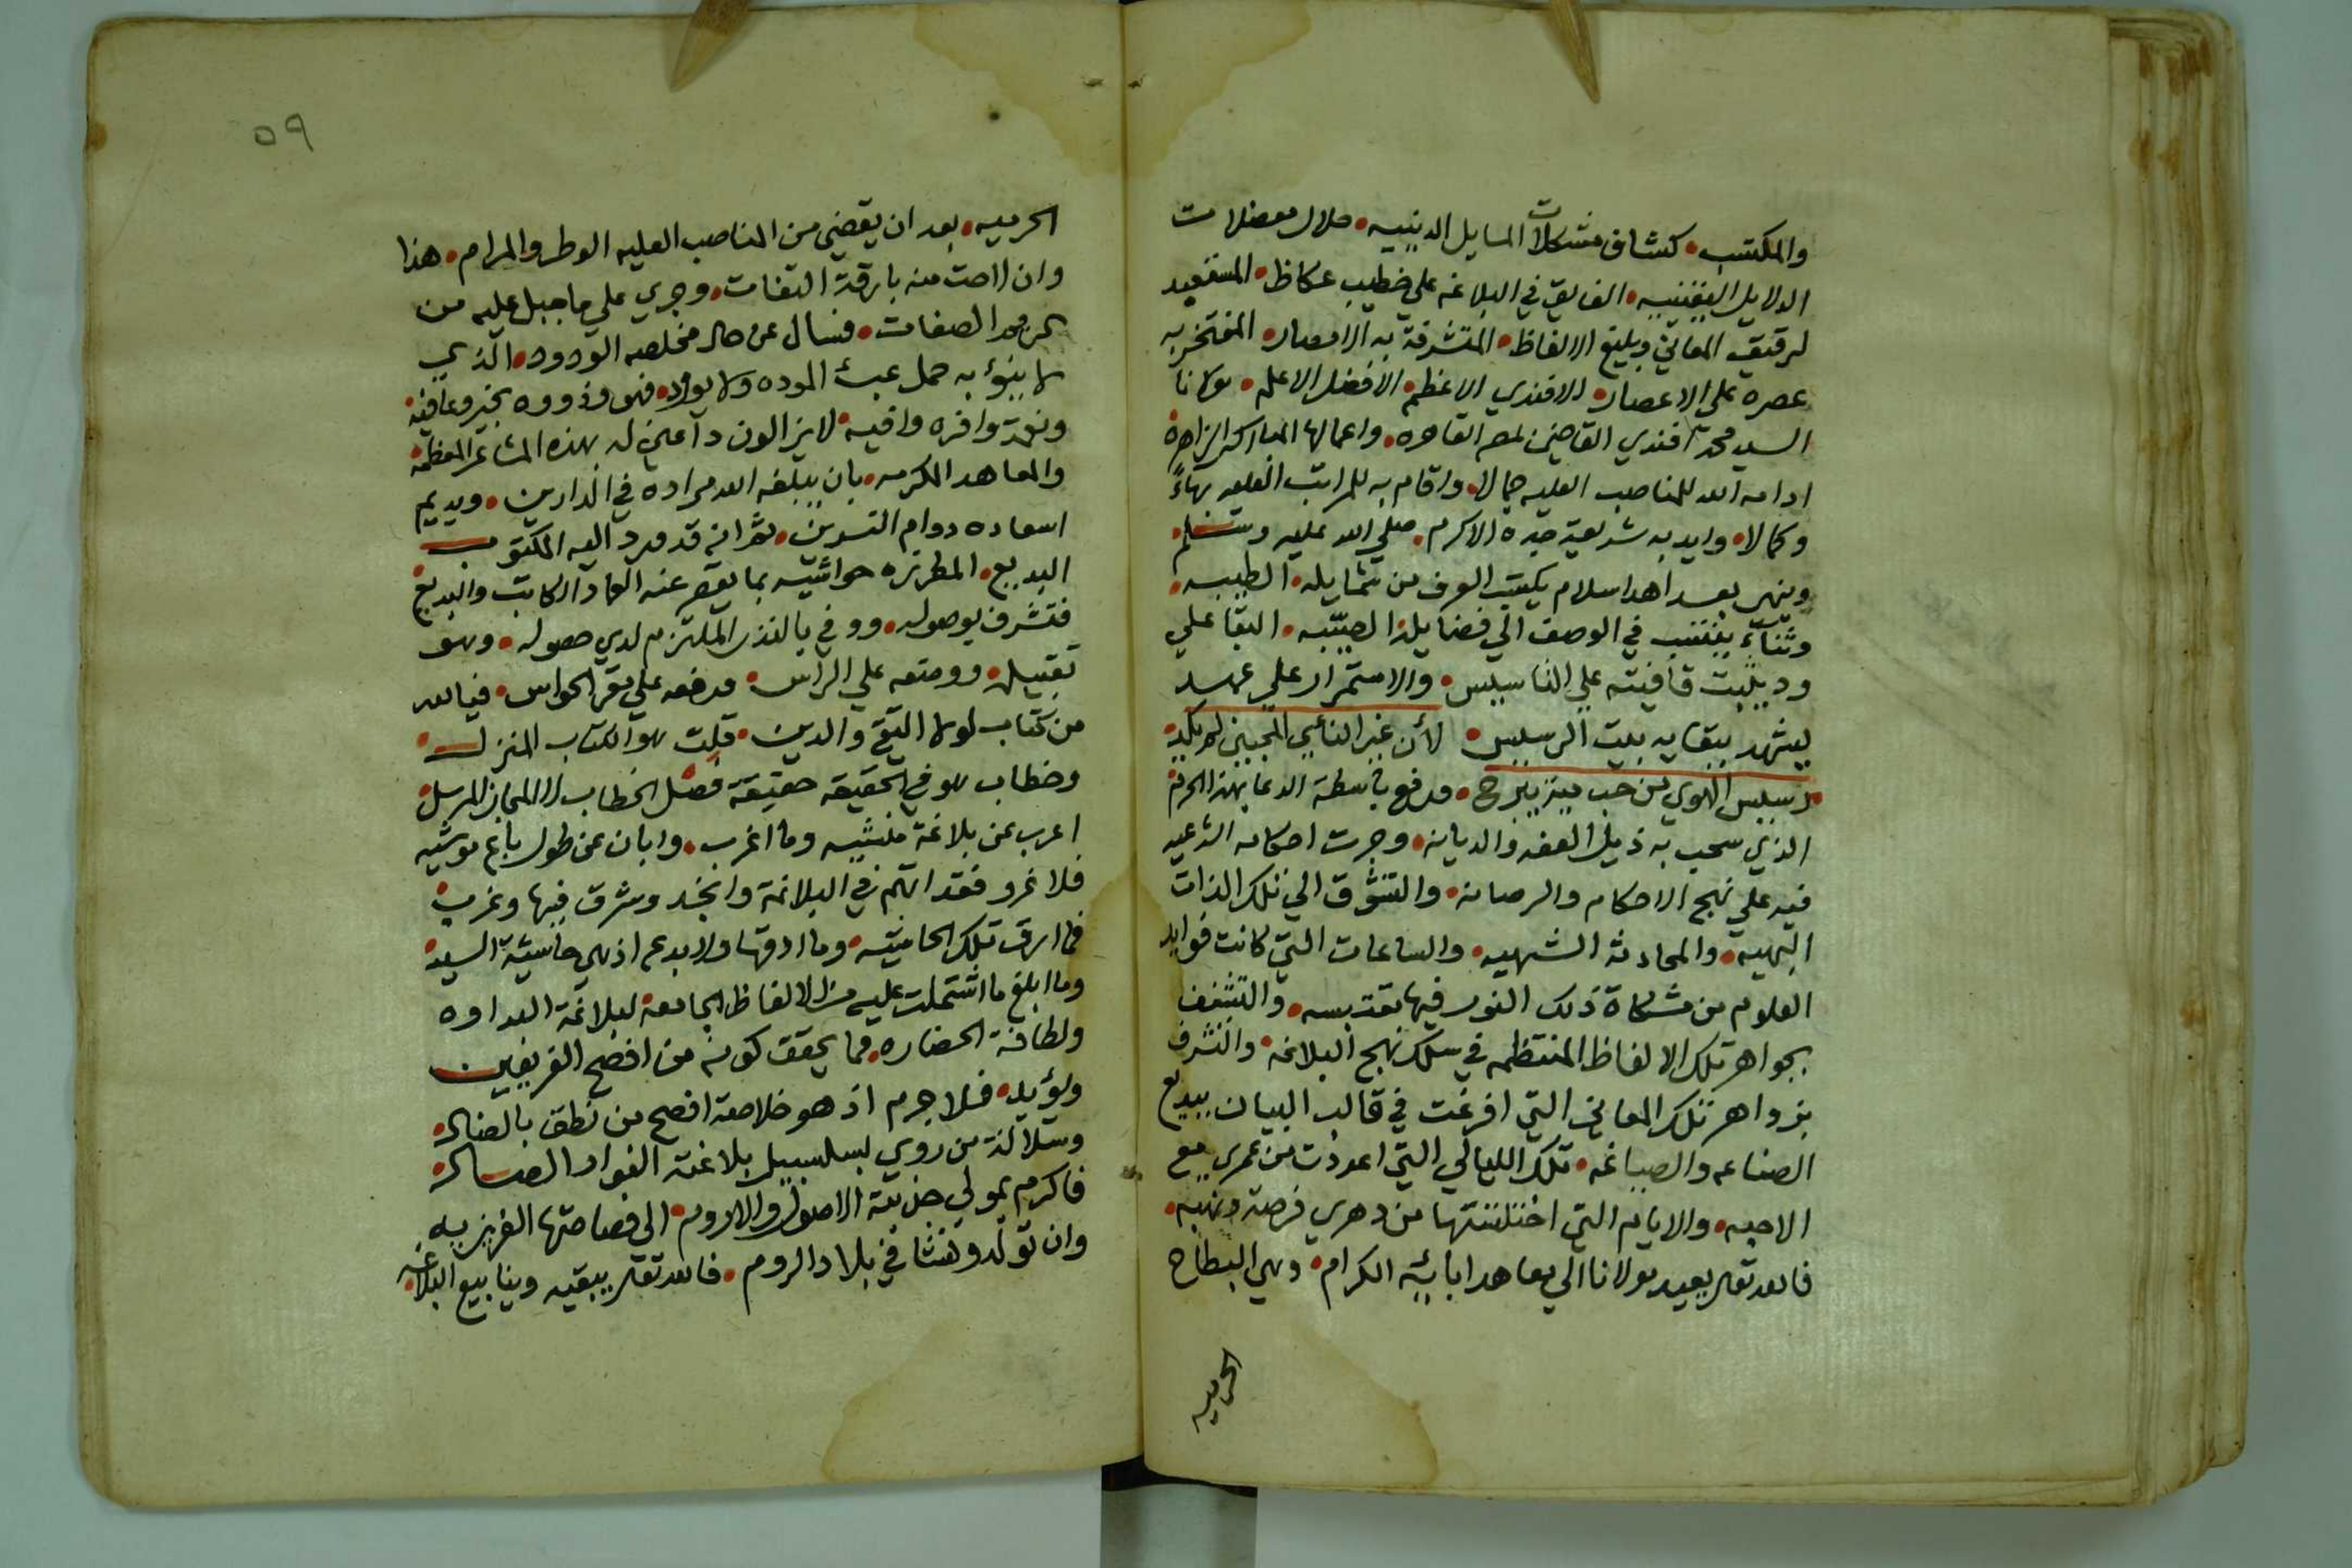 والمكتسب • كشاف مشكلات المسايل الدينيه • حلال معضلات
الدلايل اليقينيه • الفايق في البلاغه علي خطيب عكاظ • المستعبد
لرقيق المعاني وبليغ الالفاظ • المتشرفة به الامصار • المفتخر به
عصره على الاعصار • الافندي الاعظم • الافضل الاعلم • مولانا
السيد محمد افندي القاضي بمصر القاهره • واعمالها المباركه الزاهرة •
ادامه الله للمناصب العليه جمالا • واقام به للمراتب العليه بهاءً
وكمالا • وايد به شريعة جده الاكرم • صلي الله عليه وسلم •
وينهي بعد اهدا سلام يكتسب العرف من شمايله الطيبه •
وثناءً ينتسب في الوصف الي فضايله الصيبه • البقا علي
ود يثبت قافيته علي التاسيس • والاستمرار علي عهد
يشهد ببقايه بيت الرسيس • لأن غير النأي المحبين لم يكد •
رسيس الهوي من حب مية يبرح • ورفع باسطة الدعا بهذا الحرم
الذي سحب به ذيل العفه والديانه • وجرت احكامه الشرعيه
فيه علي نهج الاحكام والرصانه • والتشوق الي تلك الذات
البهيه • والمحادثه الشهيه • والساعات التي كانت فوايد
العلوم من مشكاة ذلك النور فيها مقتبسه • والتشنف
بجواهر تلك الالفاظ المنتظمه في سلك نهج البلاغه • والتشرف
بزواهر تلك المعاني التي افرغت في قالب البيان ببديع
الصناعه والصياغه • تلك الليالي التي اعددت من عمري مع
الاحبه • والايام التي اختلستها من دهري فرصة ونهبه •
فالله تعالى يعيد مولانا الي معاهد ابائه الكرام • وهي البطاح
الحرميه
٥٩
الحرميه • بعد ان يقضي من المناصب العليه الوطر والمرام • هذا
وان لاحت منه بارقة التفات • وجري علي ما جبل عليه من
كرم الصفات • فسال عن حال مخلصه الودود • الذي
لا ينوء به حمل عبء الموده ولا يوود • فهو وذووه بخير وعافيه •
ونعمة وافره وافيه • لايزالون داعين له بهذه المشاعر المعظمه •
والمعاهد المكرمه • بان يبلغه الله مراده في الدارين • ويديم
اسعاده دوام النسرين • ثم انه قد ورد اليه المكتوب
البديع • المطرزه حواشيه بما يقصر عنه العماد الكاتب والبديع •
فتشرف بوصوله • ووفي بالنذر الملتزم لدي حصوله • وهو
تقبيله • ووضعه علي الراس • ورفعه علي مقر الحواس • فيالله
من كتاب لولا التقي والدين • قلت هو الكتاب المنزل •
وخطاب هو في الحقيقه حقيقة فصل الخطاب لا المجاز المرسل •
اعرب عن بلاغة منشيه وما اغرب • وابان عن طول باع موشيه
فلا غرو فقد اتهم في البلاغة وانجد وشرق فيها وغرب •
فما ارق تلك الحاشيه • وما ادقها ولا بدع اذ هي حاشية السيد •
وما ابلغ ما اشتملت عليه من الالفاظ الجامعة لبلاغة البداوه
ولطافة الحضاره • مما يحقق كونه من افصح الفريقين
ويؤيد • فلا جرم اذ هو خلاصة افصح من نطق بالضاد •
وسلالة من روي بسلسبيل بلاغته الفواد الصاد •
فاكرم بمولي جذبته الاصول والاروم • الي فصاحتها الغريزيه
وان تولد ونشا في بلاد الروم • فالله تعالى يبقيه وينابيع البلاغه •